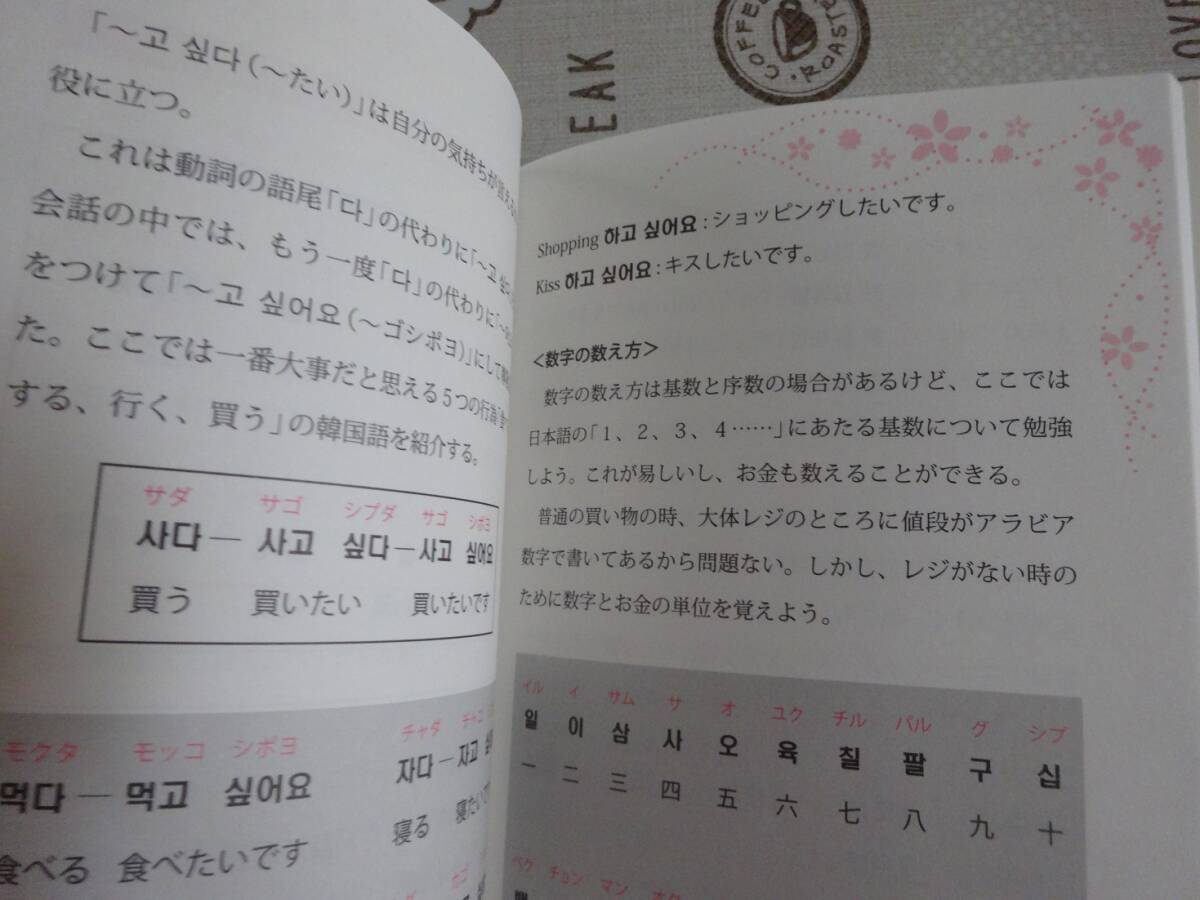 「～고 싶다（～たい）」は自分の気持ちが言える
役に立つ。
これは動詞の語尾「다」の代わりに「～고 싶
会話の中では、もう一度「다」の代わりに「～
をつけて「～고 싶어요（～ゴシポヨ）」にして
た。ここでは一番大事だと思える５つの行為「食
する、行く、買う」の韓国語を紹介する。
サダ サゴ シプダ サゴ シポヨ
사다 — 사고 싶다 — 사고 싶어요
買う 買いたい 買いたいです
モクタ モッコ シポヨ
먹다 — 먹고 싶어요
食べる 食べたいです
チャダ チャゴ
자다 — 자고
寝る 寝たいで
カゴ
COFFEE ROASTE
EAK
LOVE
Shopping 하고 싶어요 : ショッピングしたいです。
Kiss 하고 싶어요 : キスしたいです。
＜数字の数え方＞
数字の数え方は基数と序数の場合があるけど、ここでは
日本語の「１、２、３、４……」にあたる基数について勉強
しよう。これが易しいし、お金も数えることができる。
普通の買い物の時、大体レジのところに値段がアラビア
数字で書いてあるから問題ない。しかし、レジがない時の
ために数字とお金の単位を覚えよう。
イル イ サム サ オ ユク チル パル グ シプ
일 이 삼 사 오 육 칠 팔 구 십
一 二 三 四 五 六 七 八 九 十
ペク チョン マン オク